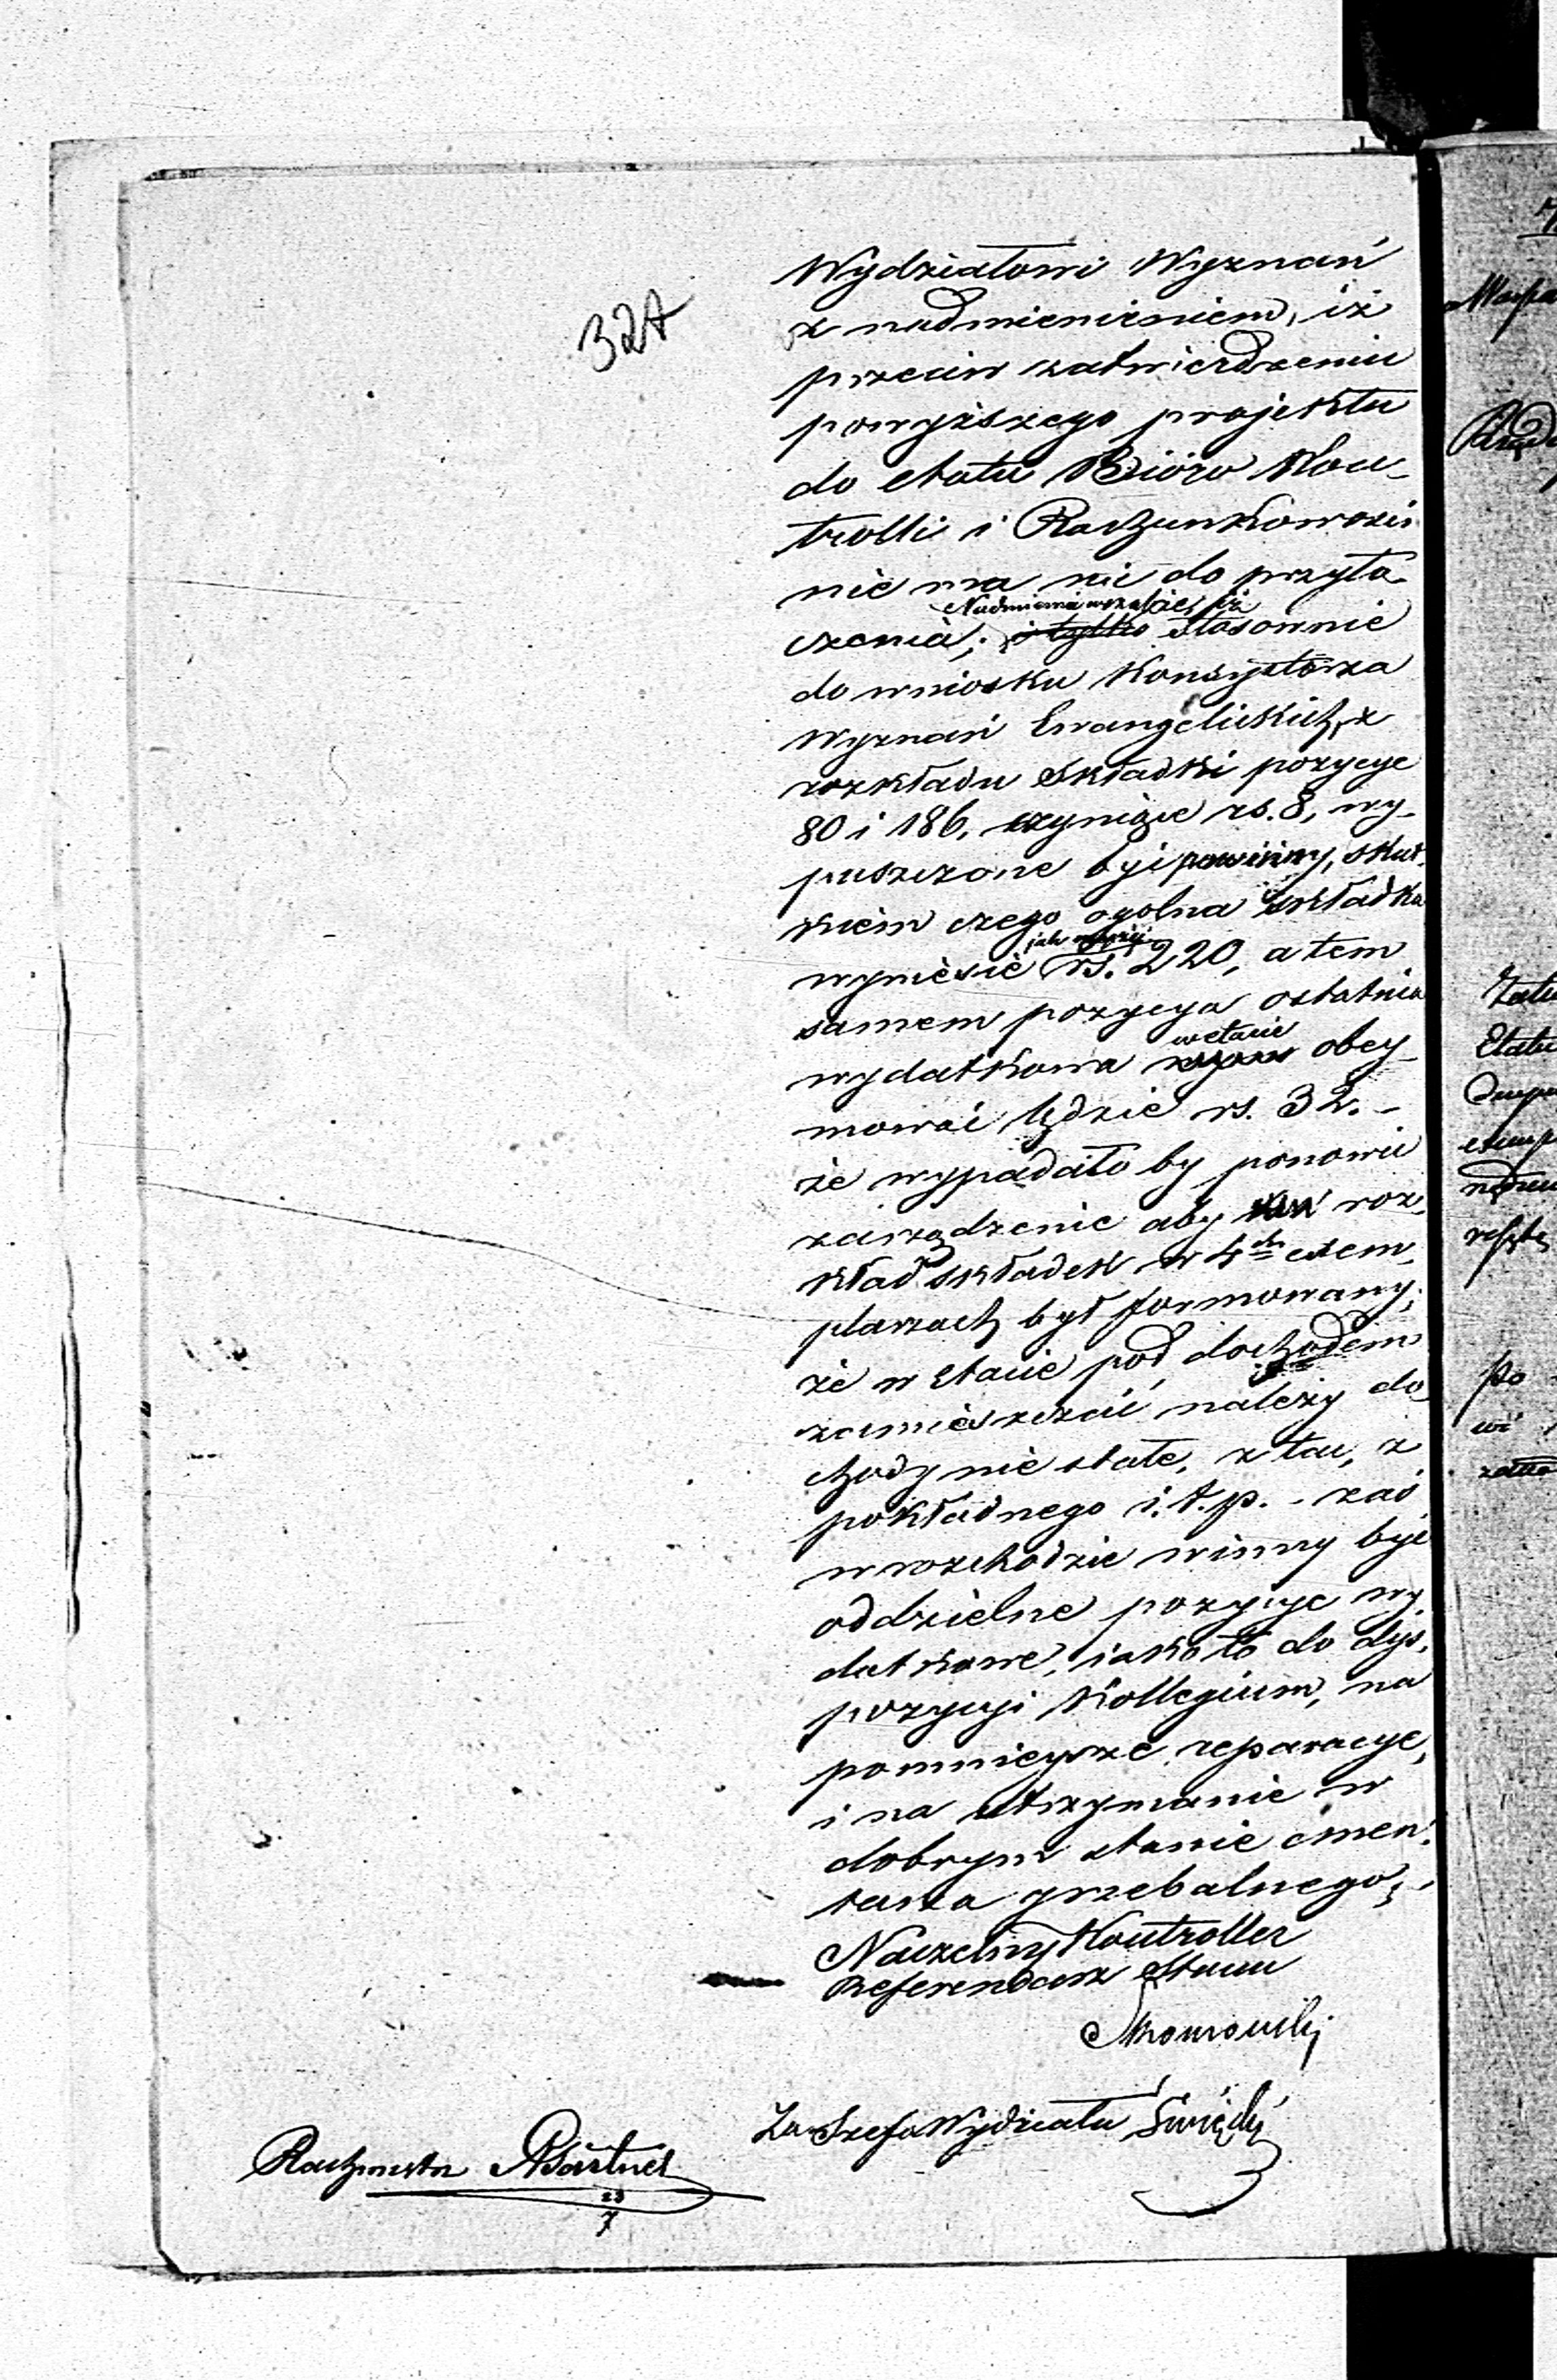 327
Wydziałowi Wyznań
z nadmienieniem, iż
przeciw zatwierdzeniu
powyższego projektu
do etatu Bióro Kon-
trolli i Rachunkowości
nie ma nic do przyta-
Nadmienia wszakże, iż
czenia; i tylko stosownie
do wniosku Konsystorza
Wyznań Ewangelickich, z
rozkładu składki pozycye
80 i 186, czyniące rs. 8, wy-
puszczone być powinny, skut-
kiem czego ogolna składka
jak wyżej
wyniesie rs. 220, a tem
samem pozycya ostatnia
w etacie
wydatkowa obey-
mować będzie rs. 32. -
że wypadało by ponowić
zarządzenie aby roz-
kład składek w 4ch exem-
plarzach był formowany;
że w etacie pod dochodem
zamieszczać należy do-
chody nie stałe, z tac, z
pokładnego i. t. p. - zaś
w rozchodzie winny być
oddzielne pozycye wy-
datkowe, iako to do dys-
pozycyi Kollegium, na
pomnieysze reparacye,
i na utrzymanie w
dobrym stanie cmen-
tarza grzebalnego, -
Naczelny Kontroller
Referendarz Stanu
Za Szefa Wydziału Święcki
Rachmistrz
23
7